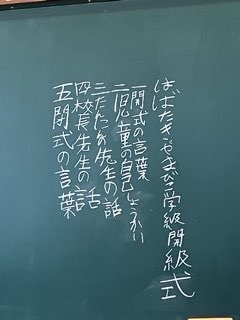 はばたきやまびこ学級開級式
一開式の言葉
二児童の自己しょうかい
三たんにん先生の話
四校長先生の話
五閉式の言葉